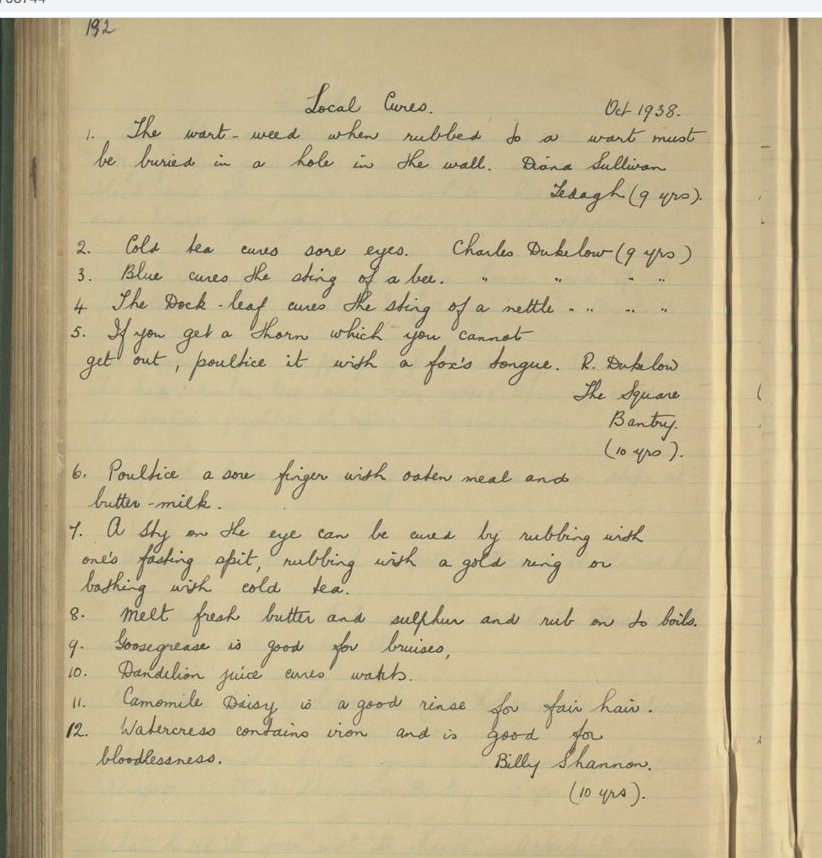 192
Local Cures. Oct 1938.
1. The wart-weed when rubbed to a wart must
be buried in a hole in the wall. Diana Sullivan
Tedagh (9 yrs).
2. Cold tea cures sore eyes. Charles Dukelow (9 yrs)
3. Blue cures the sting of a bee. " " " "
4. The Dock-leaf cures the sting of a nettle " " " "
5. If you get a thorn which you cannot
get out, poultice it with a fox's tongue. R. Dukelow
The Square
Bantry.
(10 yrs).
6. Poultice a sore finger with oaten meal and
butter-milk.
7. A sty on the eye can be cured by rubbing with
one's fasting spit, rubbing with a gold ring or
bathing with cold tea.
8. Melt fresh butter and sulphur and rub on to boils.
9. Goosegrease is good for bruises,
10. Dandelion juice cures warts.
11. Camomile Daisy is a good rinse for fair hair.
12. Watercress contains iron and is good for
bloodlessness. Billy Shannon.
(10 yrs).